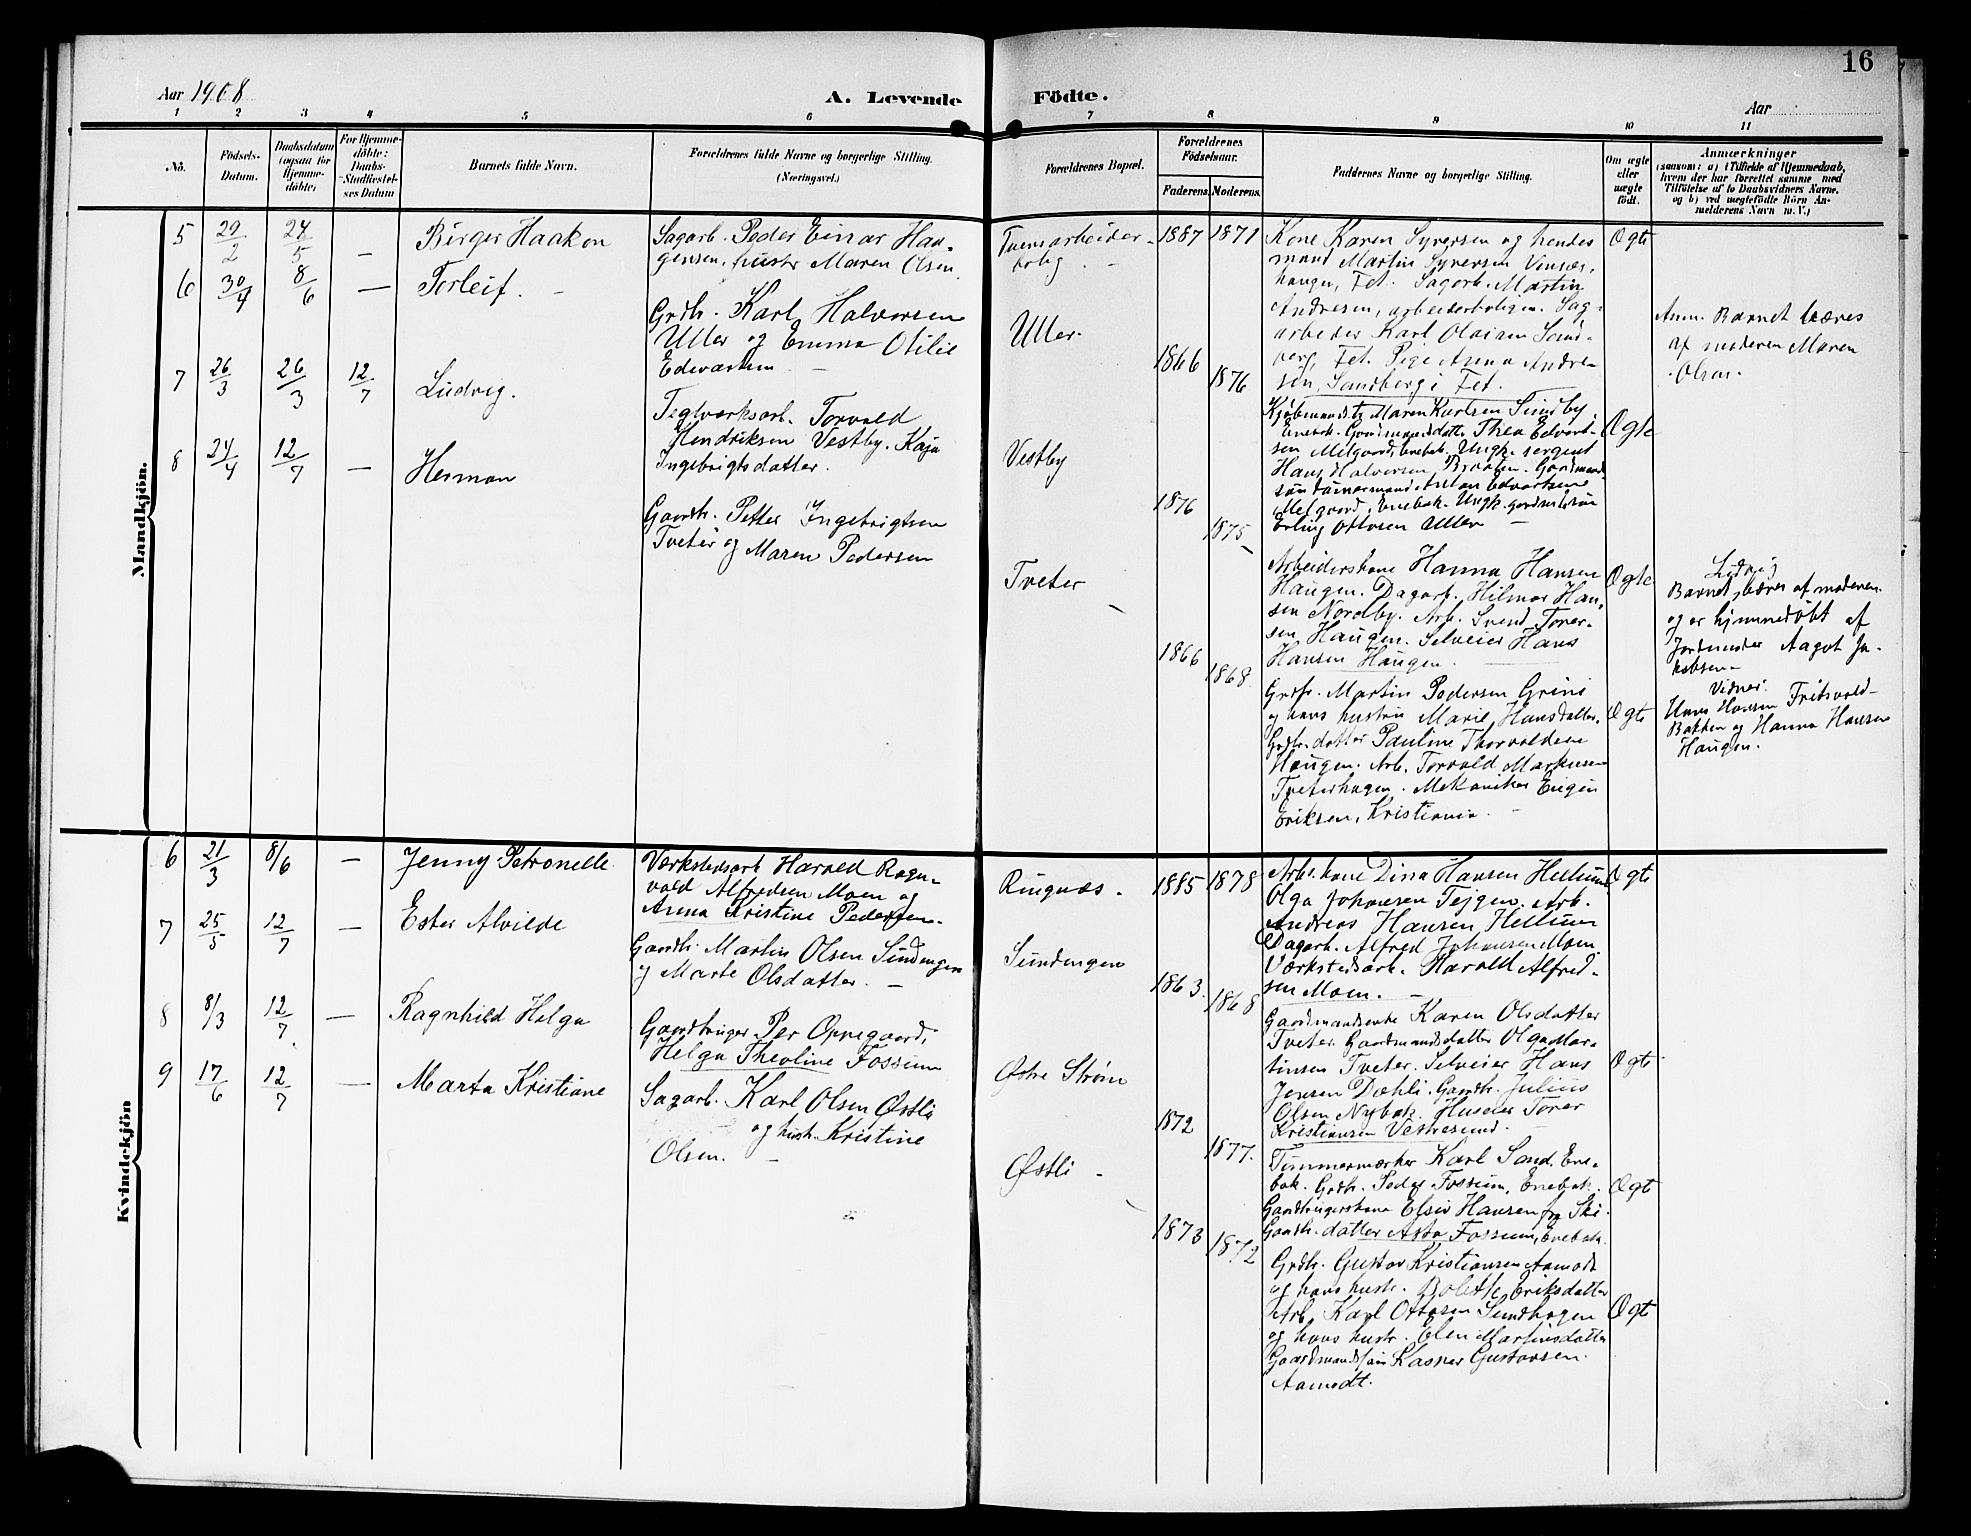 16
Aar 1908
A. Levende Födte.
Aar
1 2 3 4 5 6 7 8 9 10 11
No.
Födsels-
Datum.
Daabsdatum
(ogsaa for
Hjemme-
döbte)
For Hjemme-
döbte:
Daabs-
Stadfæstel-
ses Datum
Barnets fulde Navn.
Forældrenes fulde Navne og borgerlige Stilling.
(Næringsvei.)
Forældrenes Bopæl.
Forældrenes
Födselsaar.
Faderens. Moderens.
Faddernes Navne og borgerlige Stilling.
Om ægte
eller
uægte
født.
Anmærkninger
(saasom: a) i Tilfælde af Hjemmedaab,
hvem der har forrettet samme med
Tilföielse af to Daabsvidners Navne.
og b) ved uægtefödte Börn An-
melderens Navn m. V.)
Mandkjön.
5 29/2 24/5 — Birger Haakon
Sagarb. Peder Einar Hau-
gensen, hustr Maren Olsen
Tversarbeider-
bolig. —
1887 1871
Kone Karen Syversen og hendes
mand Martin Syversen
haugen, Fet. Sagarb. Martin
Andresen, arbeiderboligen. Sag-
arbeider Karl Olaisen Sand-
berg, Fet. Pige Anna Andre-
sen, Sandberg i Fet.
Ægte
Anm. Barnet bæres
af moderen Maren
Olsen.
6 30/4 8/6 — Torleif. —
Grdbr. Karl Halvorsen
Uller og Emma Otilie
Edvardsen —
Uller.
1866 1876
Kjöbmandsk. Maren Karlsen Sundby
Enebak. Gaardmandsdatt. Thea Edvard-
sen Melgaard, Enebak. Ungk. sergent
Hans Halvorsen, Braaten. Gaardmand-
sön Anton Edvardsen
Melgaard, Enebak. Ungk. gaardmandssön
Erling Ottosen Uller —
Ægte
7 26/3 26/3 12/7 Ludvig.
Teglværksarb. Torvald
Hendriksen Vestby. Kaja
Ingebrigtsdatter.
Vestby
1876 1875
Arbeiderskone Hanna Hansen
Haugen. Dagarb. Hilmar Han-
sen Nordby. Arb. Svend Torer-
sen Haugen. Selveier Hans
Hansen Haugen.
Ægte
Ludvig
Barnet bæres af moderen
og er hjemmedöbt af
Jordmoder Aagot Ja-
kobsen—
Vidner:
Hans Hansen Fritsvold-
Bakken og Hanna Hansen
Haugen.
8 24/4 12/7 — Herman
Gaardbr. Petter Ingebrigtsen
Tveter og Maren Pedersen
Tveter
1866 1868
Grdbr. Martin Pedersen Grini
og hans hustru Marie Hansdatter.
Grdbr. datter Pauline Thorvaldsen
Haugen. Arb. Torvald Markusen
Tveterhagen. Mekaniker Eugen
Eriksen, Kristiania. —
Ægte
Kvindekjön
6 21/3 8/6 — Jenny Petronelle
Værkstedsarb Harald Ragn-
vald Alfredsen Moen og
Anna Kristine Pedersen.
Ringnæs.
1885 1878
Arb. kone Dina Hansen Hellum
Olga Johansen Tejgen. Arb.
Andreas Hansen Hellum
Dagarb. Alfred Johansen Moen
Værkstedsarb. Harald Alfred-
sen Moen. —
Ægte
7 25/5 12/7 — Ester Alvilde
Gaardbr. Martin Olsen Sundengen
og Marte Olsdatter. —
Sundengen
1863. 1868
Gaardmandsenke Karen Olsdatter
Tveter. Gaardmandsdatter Olga Mar-
tinsen Tveter. Selveier Hans
Jensen Dæhli. Gaardbr. Julius
Olsen Nybak. Huseier Torer
Kristiansen Vestresund.
Ægte
8 8/3 12/7 — Ragnhild Helga
Gaardbruger Per Oppegaard,
Helga Theoline Fossum
Østre Strøm
1872 1877.
Tømmermærker Karl Sand, Ene-
bak. Grdbr. Peder Fossum, Enebak.
Gaardbrugerskone Elsie Hansen fra Ski.
Gaardbr. datter Asta Fossum, Enebak.
Ægte
9 17/6 12/7 — Marta Kristiane
Sagarb. Karl Olsen Østli
og hust. Kristine
Olsen. —
Østli —
1873 1872
Grdbr. Gustav Kristiansen Aamodt
og hans hustr. Bolette Eriksdatter
Arb. Karl Ottosen Sundhagen
og hans hustr. Elen Martinsdatter
Gaardmandssön Kasper Gustavsen
Aamodt.
Ægte